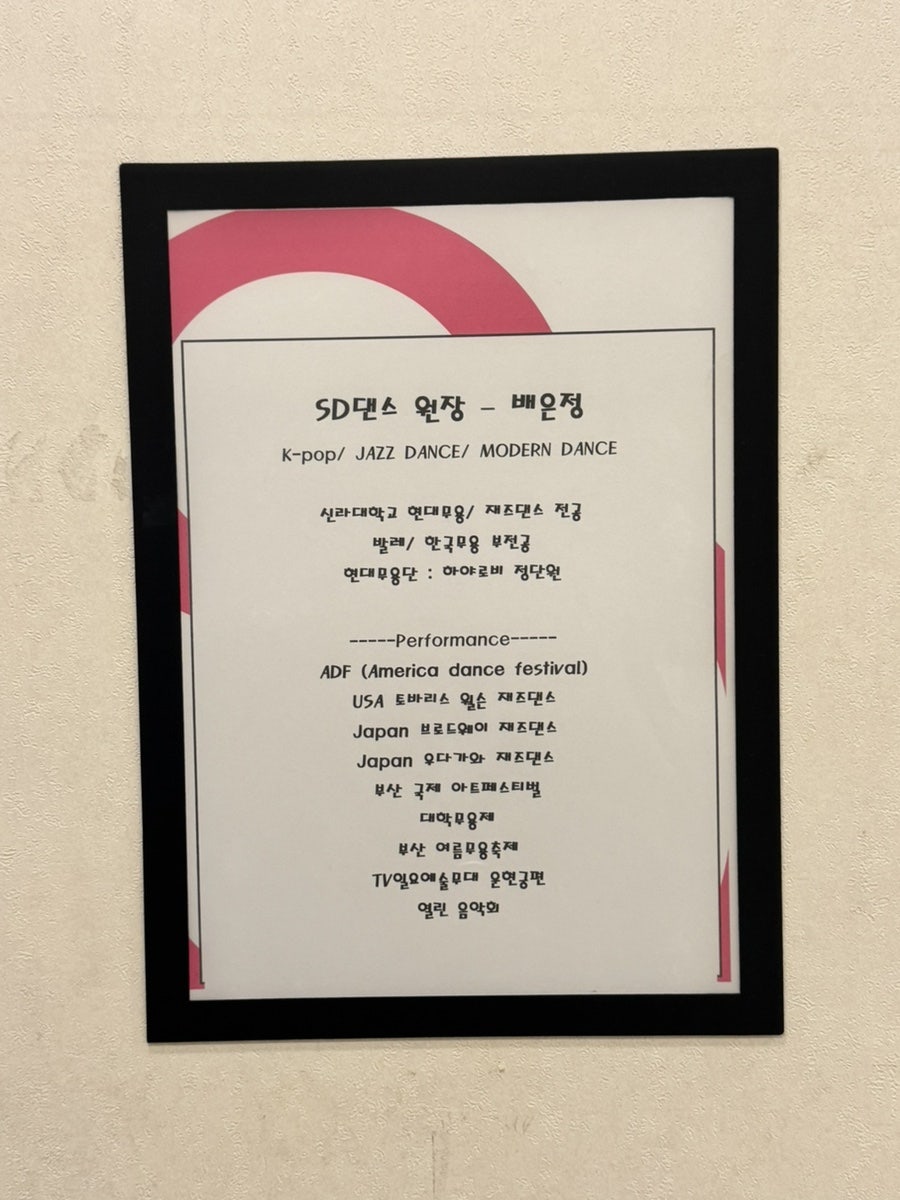 SD댄스 원장 – 배은정
K-pop/ JAZZ DANCE/ MODERN DANCE
신라대학교 현대무용/ 재즈댄스 전공
발레/ 한국무용 부전공
현대무용단 : 하야로비 정단원
-----Performance-----
ADF (America dance festival)
USA 토바리스 윌슨 재즈댄스
Japan 브로드웨이 재즈댄스
Japan 우다가와 재즈댄스
부산 국제 아트페스티벌
대학무용제
부산 여름무용축제
TV일요예술무대 운현궁편
열린 음악회